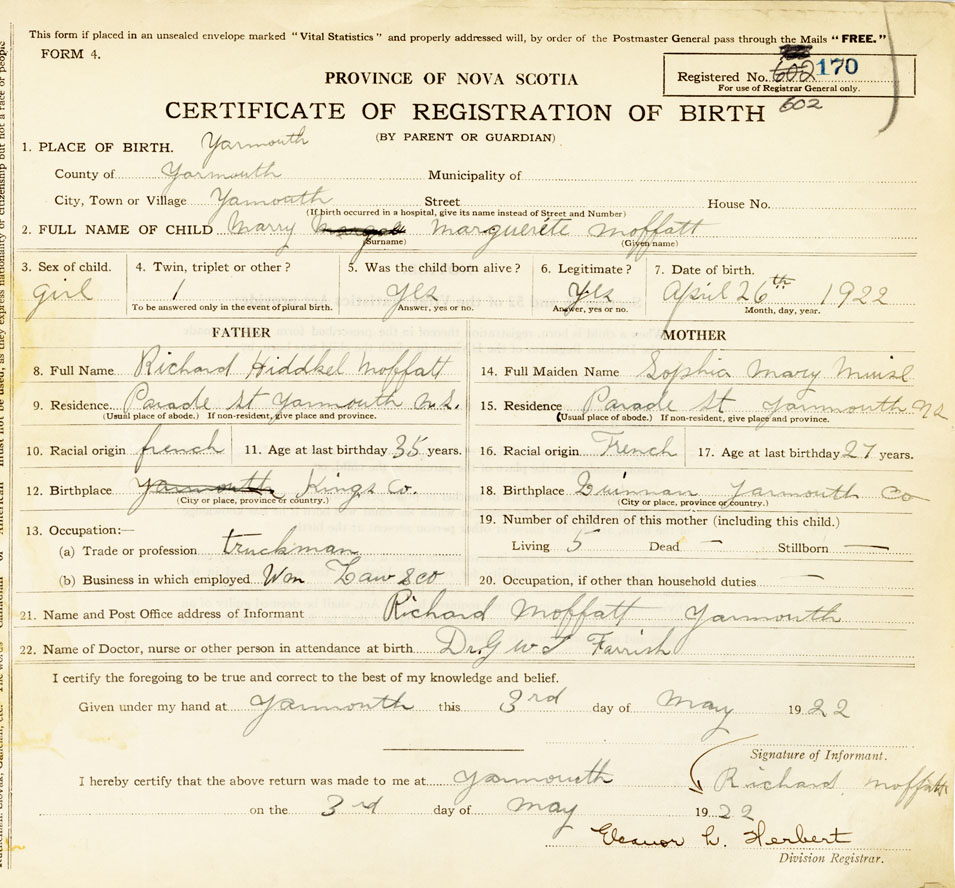 This form if placed in an unsealed envelope marked "Vital Statistics" and properly addressed will, by order of the Postmaster General pass through the Mails "FREE."
FORM 4.
PROVINCE OF NOVA SCOTIA
Registered No. 602 170
For use of Registrar General only.
602
CERTIFICATE OF REGISTRATION OF BIRTH
(BY PARENT OR GUARDIAN)
1. PLACE OF BIRTH. Yarmouth
County of Yarmouth Municipality of
City, Town or Village Yamouth Street House No.
(If birth occurred in a hospital, give its name instead of Street and Number)
2. FULL NAME OF CHILD Marry Marguerete Moffatt
(Surname) (Given name)
3. Sex of child. 4. Twin, triplet or other? 5. Was the child born alive? 6. Legitimate? 7. Date of birth.
girl 1 yes yes April 26th 1922
To be answered only in the event of plural birth. Answer, yes or no. Answer, yes or no. Month, day, year.
FATHER MOTHER
8. Full Name Richard Hiddkel Moffatt 14. Full Maiden Name Sophia Mary Muise
9. Residence Parade St Yarmouth N.S. 15. Residence Parade St Yarmouth NS
(Usual place of abode.) If non-resident, give place and province. (Usual place of abode.) If non-resident, give place and province.
10. Racial origin french 11. Age at last birthday 35 years. 16. Racial origin French 17. Age at last birthday 27 years.
12. Birthplace Yarmouth Kings Co. 18. Birthplace Quinnan Yarmouth Co
(City or place, province or country.) (City or place, province or country.)
13. Occupation:— 19. Number of children of this mother (including this child.)
(a) Trade or profession truckman Living 5 Dead — Stillborn —
(b) Business in which employed Wm Law & Co 20. Occupation, if other than household duties —
21. Name and Post Office address of Informant Richard Moffatt Yarmouth
22. Name of Doctor, nurse or other person in attendance at birth Dr. G W T Farrish
I certify the foregoing to be true and correct to the best of my knowledge and belief.
Given under my hand at Yarmouth this 3rd day of May 1922
Signature of Informant.
I hereby certify that the above return was made to me at Yarmouth Richard Moffatt
on the 3rd day of May 1922
Eleanor L. Herbert
Division Registrar.